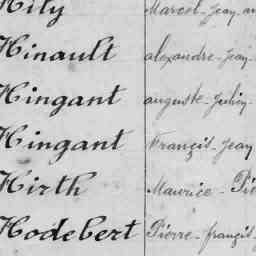 Hily Marcel-Jean
Hinault alexandre-Jean
Hingant auguste-Julien
Hingant Françis-Jean
Hirth Maurice-Pie
Hodebert Pierre-françis-